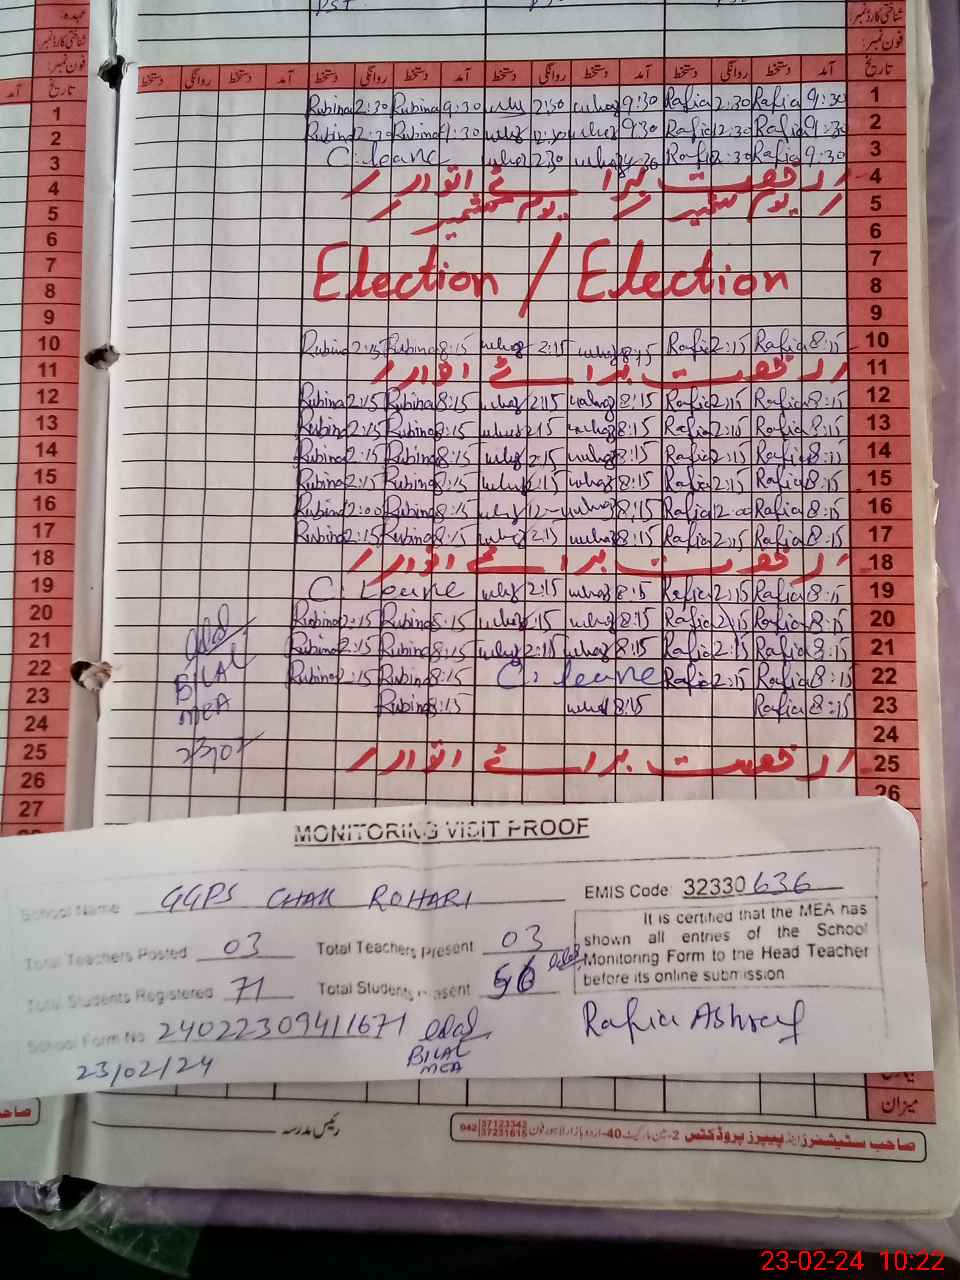 عہدہ:
شناختی کارڈ نمبر:
فون نمبر:
تاریخ آمد دستخط روانگی دستخط آمد دستخط روانگی دستخط آمد دستخط روانگی دستخط آمد دستخط روانگی دستخط
1 9:30 Rafia 2:30 Rafia 9:30 2:30 9:30 Rubina 2:30 Rubina
2 9:30 Rafia 2:30 Rafia 9:30 12:30 9:30 Rubina 2:30 Rubina
3 9:30 Rafia 2:30 Rafia 2:30 C. leave
4 رخصت برائے اتوار
5 یوم کشمیر یوم کشمیر
6
7
8 Election / Election
9
10 8:15 Rafia 2:15 Rafia 8:15 2:15 8:15 Rubina 2:15 Rubina
11 رخصت برائے اتوار
12 8:15 Rafia 2:15 Rafia 8:15 2:15 8:15 Rubina 2:15 Rubina
13 8:15 Rafia 2:15 Rafia 8:15 2:15 8:15 Rubina 2:15 Rubina
14 8:15 Rafia 2:15 Rafia 8:15 2:15 8:15 Rubina 2:15 Rubina
15 8:15 Rafia 2:15 Rafia 8:15 2:15 8:15 Rubina 2:15 Rubina
16 8:15 Rafia 12:00 Rafia 8:15 12 8:15 Rubina 2:00 Rubina
17 8:15 Rafia 2:15 Rafia 8:15 2:15 8:15 Rubina 2:15 Rubina
18 رخصت برائے اتوار
19 8:15 Rafia 2:15 Rafia 8:15 2:15 C. Leave
20 8:15 Rafia 2:15 Rafia 8:15 2:15 8:15 Rubina 2:15 Rubina
21 8:15 Rafia 2:15 Rafia 8:15 2:15 8:15 Rubina 2:15 Rubina
22 8:15 Rafia 2:15 Rafia C. leave 8:15 Rubina 2:15 Rubina
23 8:15 Rafia 8:15 8:15 Rubina
24
25 رخصت برائے اتوار
26
BILAL
MEA
23/02
MONITORING VISIT PROOF
School Name GGPS CHAK ROHARI EMIS Code: 32330636
Total Teachers Posted 03 Total Teachers Present 03
Total Students Registered 71 Total Students Present 56
It is certified that the MEA has
shown all entries of the School
Monitoring Form to the Head Teacher
before its online submission
School Form No 24022309411671
BILAL
MEA
Rafia Ashraf
23/02/24
میزان
رئیس مدرسہ
صاحب سٹیشنرز اینڈ پیپرز پروڈکٹس 2-مین مارکیٹ 40-اردو بازار لاہور فون 042 37123342 37231615
23-02-24 10:22